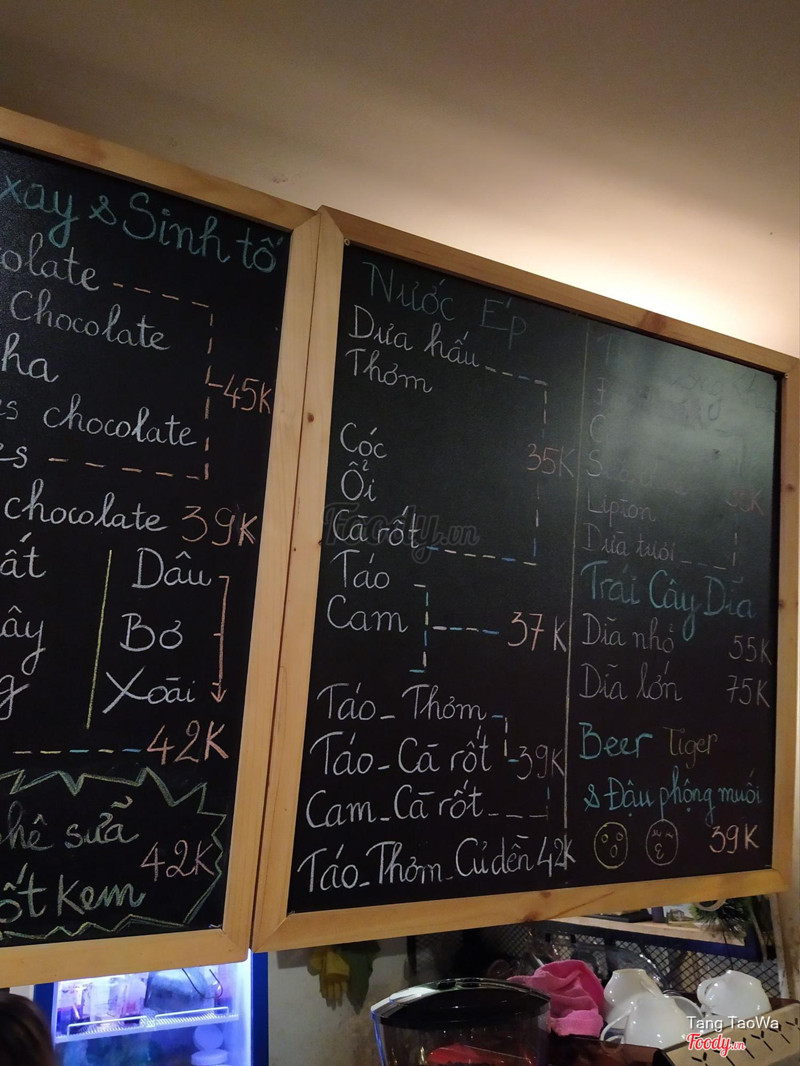 xay & Sinh tố
olate
Chocolate
ha
es chocolate
es
45K
chocolate 39K
ất
ây
g
Dâu
Bơ
Xoài
42K
hê sữa
ốt kem
42K
Nước Ép
Dưa hấu
Thơm
Cóc
Ổi
Cà rốt
35K
Táo
Cam
37K
Táo - Thơm
Táo - Cà rốt
Cam - Cà rốt
39K
Táo - Thơm - Củ dền 42K
Lipton
Dừa tươi
Trái Cây Dĩa
Dĩa nhỏ 55K
Dĩa lớn 75K
Beer Tiger
& Đậu phộng muối
39K
Foody.vn
Tang TaoWa
Foody.vn